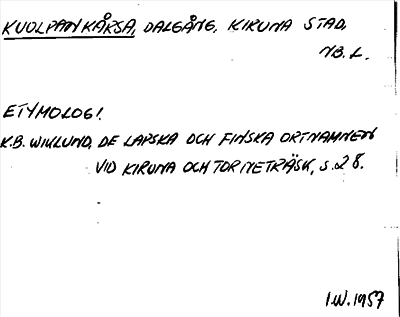 KUOLPANKÅRSA, DALGÅNG, KIRUNA STAD,
NB. L.
ETYMOLOGI.
K.B. WIKLUND, DE LAPSKA OCH FINSKA ORTNAMNEN
VID KIRUNA OCH TORNETRÄSK, S. 28.
I.W. 1957